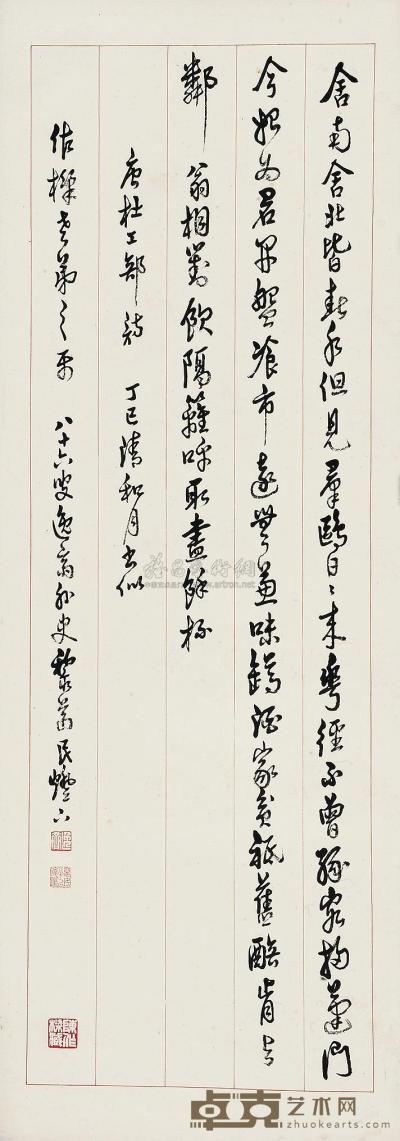 舍南舍北皆春水但見羣鷗日日來花徑不曾緣客掃蓬門
今始為君開盤飧市遠無兼味罇酒家貧祗舊醅肯與
鄰翁相對飲隔籬呼取盡餘杯
唐杜工部詩 丁巳清和月書似
佐樑老弟之雨 八十六叟逸翁外史
卓克艺术网
www.zhuokearts.com